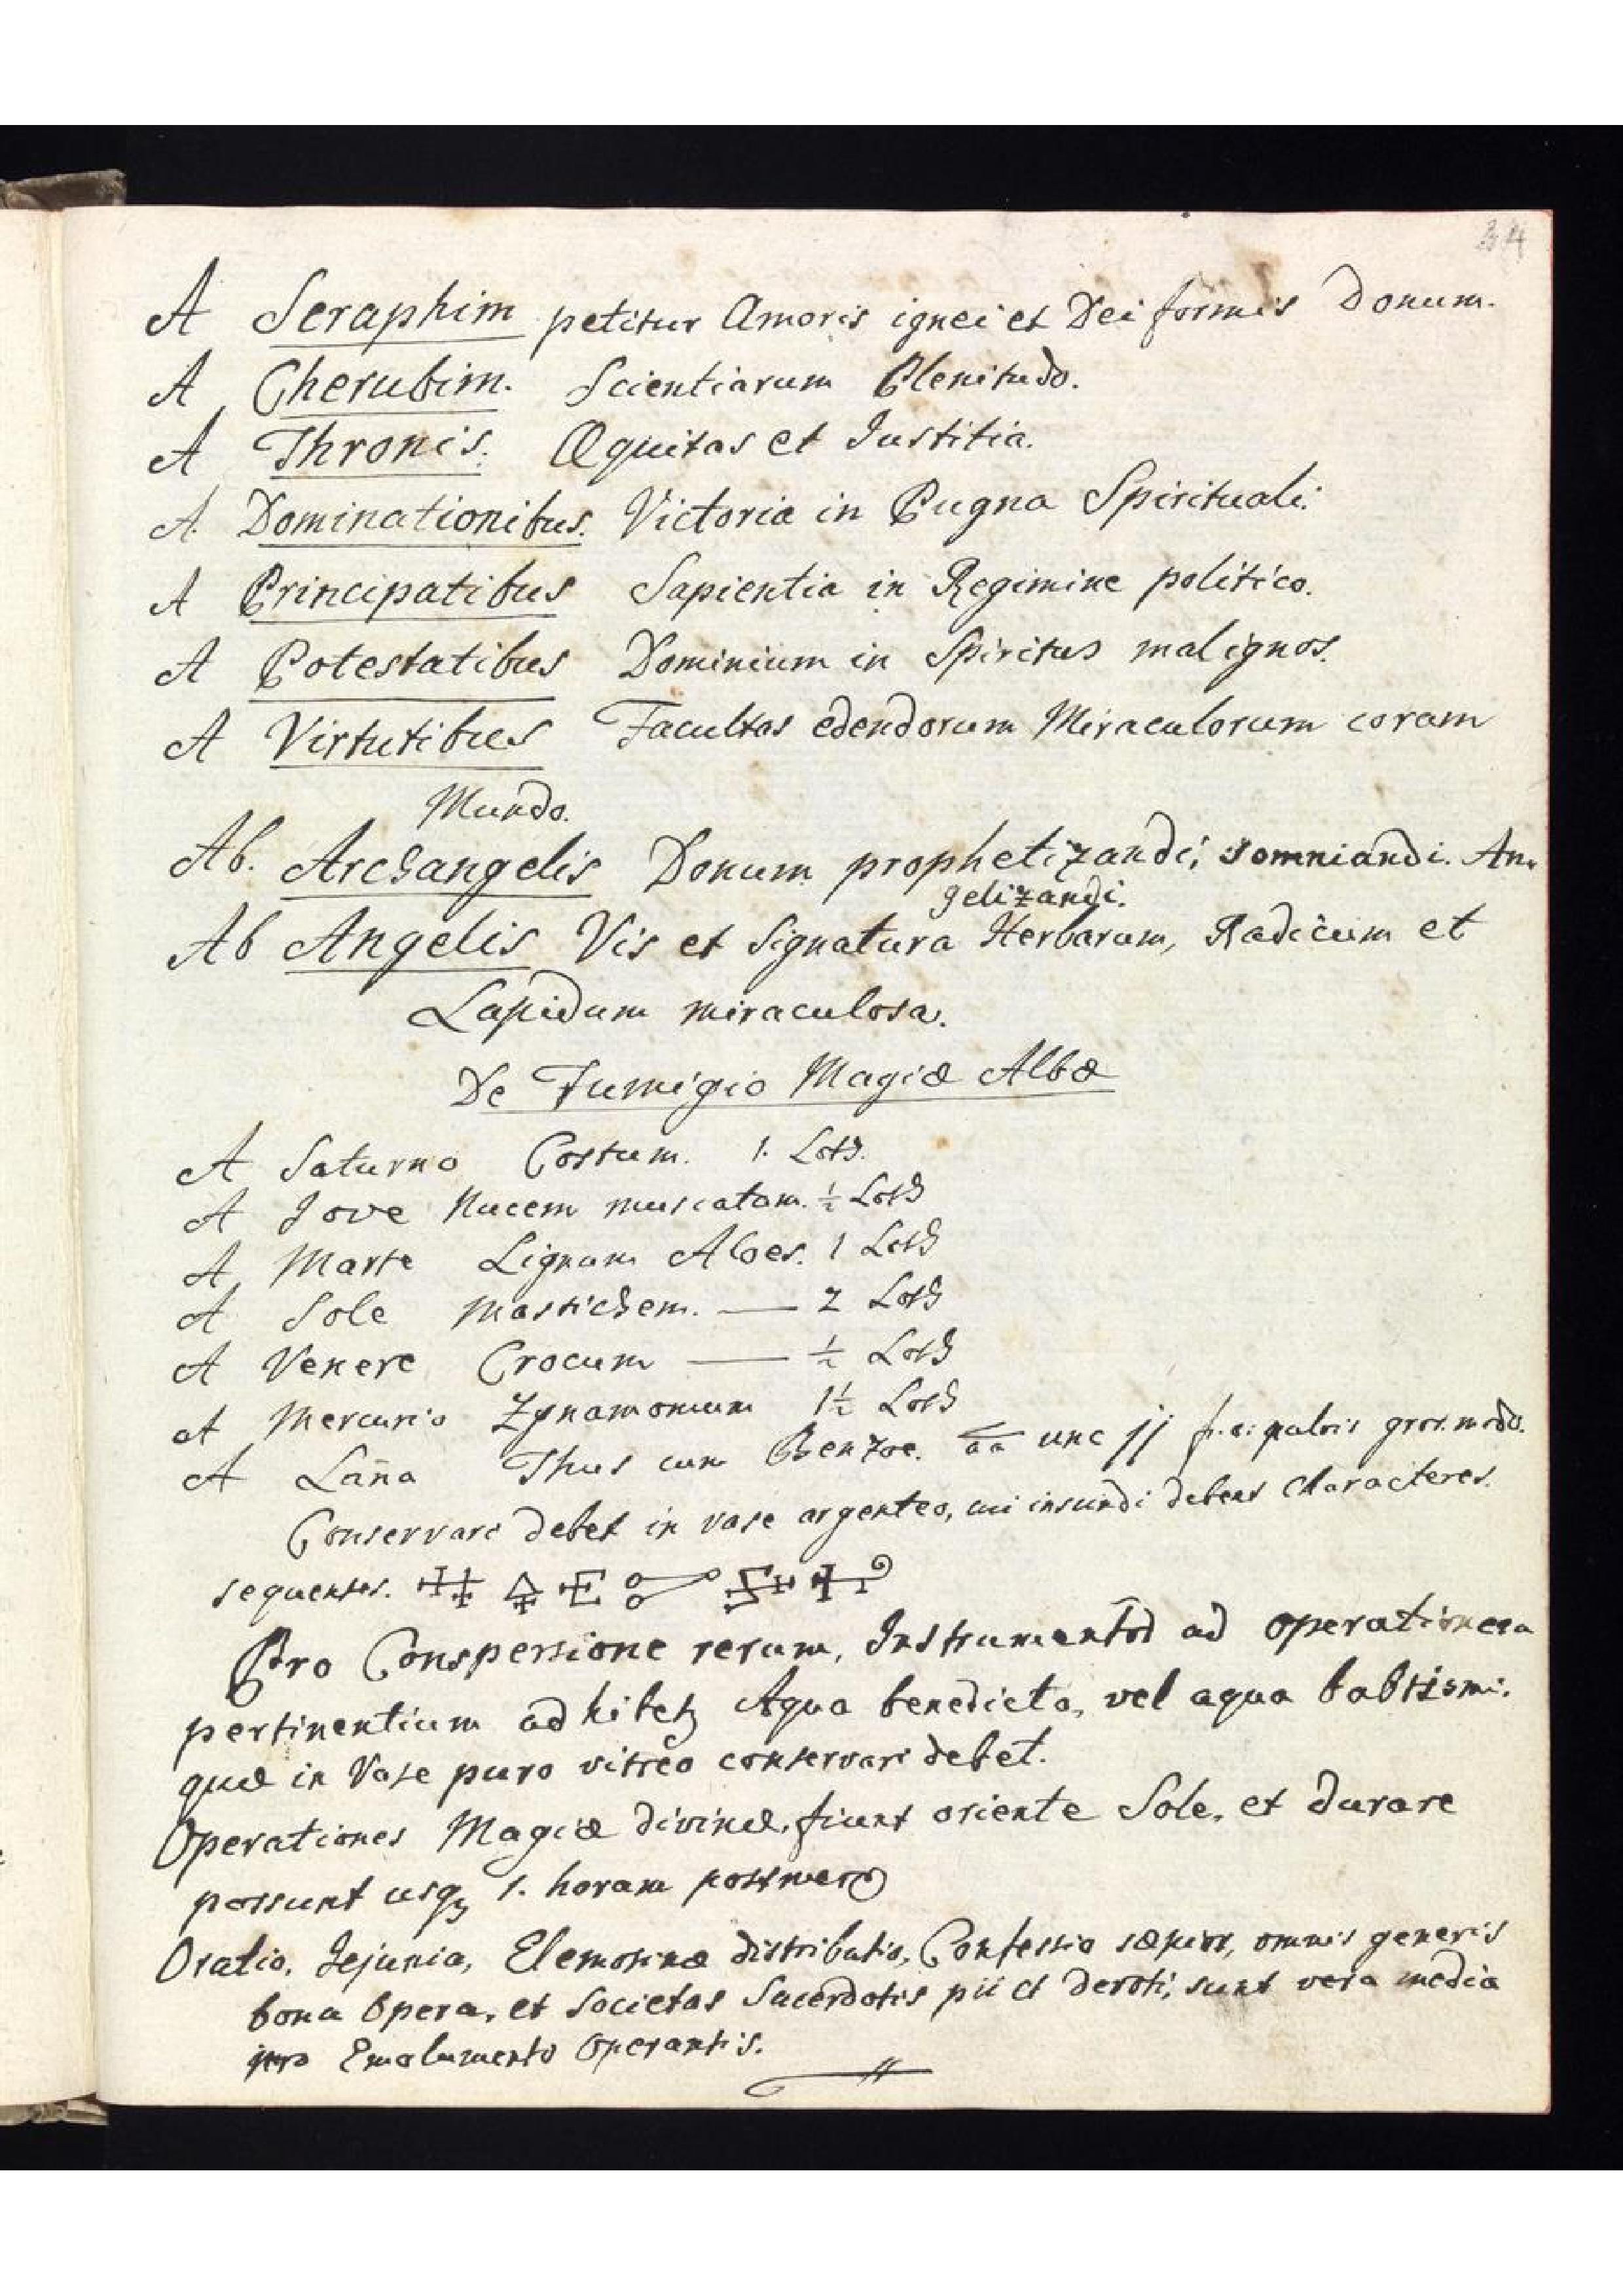 34
A Seraphim petitur Amoris ignei et Deiformis Donum.
A Cherubim. Scientiarum Plenitudo.
A Thronis. Æquitas et Justitia.
A. Dominationibus. Victoria in Pugna Spirituali.
A Principatibus Sapientia in Regimine politico.
A Potestatibus Dominium in Spiritus malignos.
A Virtutibus Facultas edendorum Miraculorum coram
Mundo.
Ab. Archangelis Donum prophetizandi, somniandi. An-
gelizandi.
Ab Angelis Vis et Signatura Herbarum, Radicum et
Lapidum miraculosa.
De Fumigio Magiæ Albæ
A Saturno Costum. 1. Loth.
A Jove Nucem muscatam. ½ Loth
A Marte Lignum Aloes. 1 Loth
A Sole Mastichem. — 2 Loth
A Venere Crocum — ½ Loth
A Mercurio Zynamomum 1½ Loth
A Lana Thus cum Benzoe. aa unc jj f. a. pulvis gros. modo.
Conservari debet in vase argenteo, cui insundi debent Characteres.
sequentes.
Pro Conspersione rerum, Instrumentod ad operationem
pertinentium adhibetz Aqua benedicta, vel aqua babtismi.
quæ in Vase puro vitreo conservari debet.
Operationes Magiæ divinæ, fiunt oriente Sole, et durare
possunt usqz 1. horam postmer
Oratio, Jejunia, Elemosinæ distributio, Confessio sæpior, omnis generis
bona Opera, et Societas Sacerdotis pii et devoti, sunt vera media
pro Emolumento Operantis.